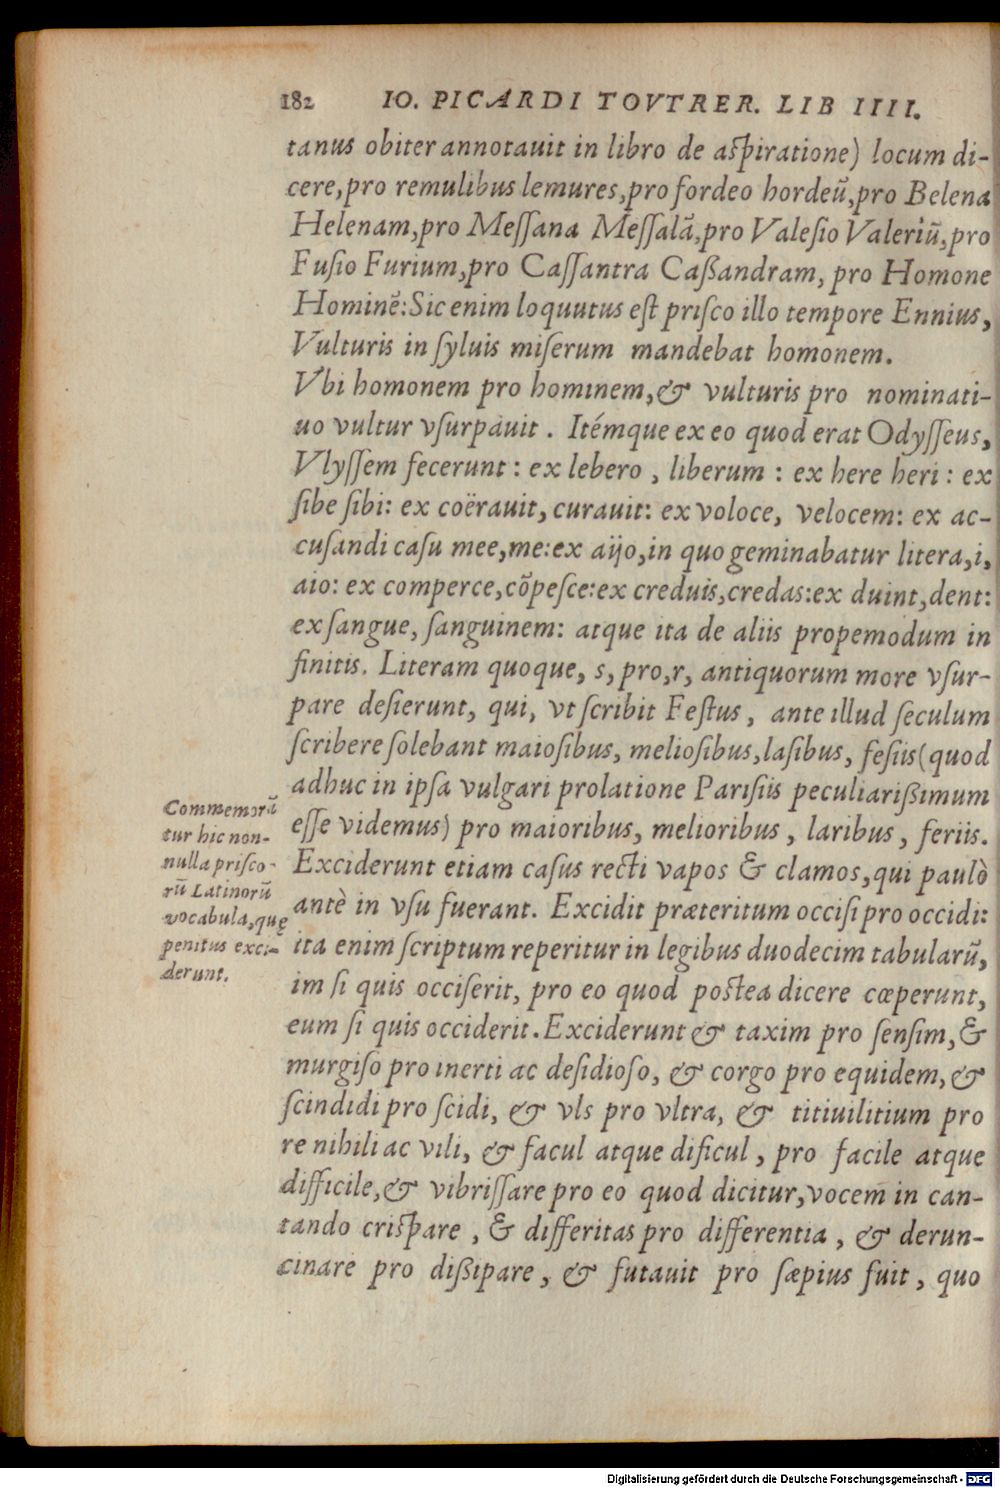 182 IO. PICARDI TOVTRER. LIB IIII.
tanus obiter annotauit in libro de aſpiratione) locum di-
cere, pro remulibus lemures, pro fordeo hordeũ, pro Belena
Helenam, pro Meſſana Meſſalã, pro Valeſio Valeriũ, pro
Fuſio Furium, pro Caſſantra Caßandram, pro Homone
Hominẽ: Sic enim loquutus eſt priſco illo tempore Ennius,
Vulturis in ſyluis miſerum mandebat homonem.
Vbi homonem pro hominem, & vulturis pro nominati-
uo vultur vſurpauit. Itémque ex eo quod erat Odyſſeus,
Vlyſſem fecerunt: ex lebero, liberum: ex here heri: ex
ſibe ſibi: ex coërauit, curauit: ex voloce, velocem: ex ac-
cuſandi caſu mee, me: ex aijo, in quo geminabatur litera, i,
aio: ex comperce, cõpeſce: ex creduis, credas: ex duint, dent:
ex ſangue, ſanguinem: atque ita de aliis propemodum in
finitis. Literam quoque, s, pro, r, antiquorum more vſur-
pare deſierunt, qui, vt ſcribit Feſtus, ante illud ſeculum
ſcribere ſolebant maioſibus, melioſibus, laſibus, feſiis (quod
adhuc in ipſa vulgari prolatione Pariſiis peculiarißimum
eſſe videmus) pro maioribus, melioribus, laribus, feriis.
Exciderunt etiam caſus recti vapos & clamos, qui paulò
antè in vſu fuerant. Excidit præteritum occiſi pro occidi:
ita enim ſcriptum reperitur in legibus duodecim tabularũ,
im ſi quis occiſerit, pro eo quod poſtea dicere cœperunt,
eum ſi quis occiderit. Exciderunt & taxim pro ſenſim, &
murgiſo pro inerti ac deſidioſo, & corgo pro equidem, &
ſcindidi pro ſcidi, & vls pro vltra, & titiuilitium pro
re nihili ac vili, & facul atque dificul, pro facile atque
difficile, & vibriſſare pro eo quod dicitur, vocem in can-
tando criſpare, & differitas pro differentia, & derun-
cinare pro dißipare, & futauit pro ſæpius fuit, quo
Commemorã
tur hic non-
nulla priſco-
rũ Latinorũ
vocabula, quę
penitus exci-
derunt.
Digitalisierung gefördert durch die Deutsche Forschungsgemeinschaft - DFG